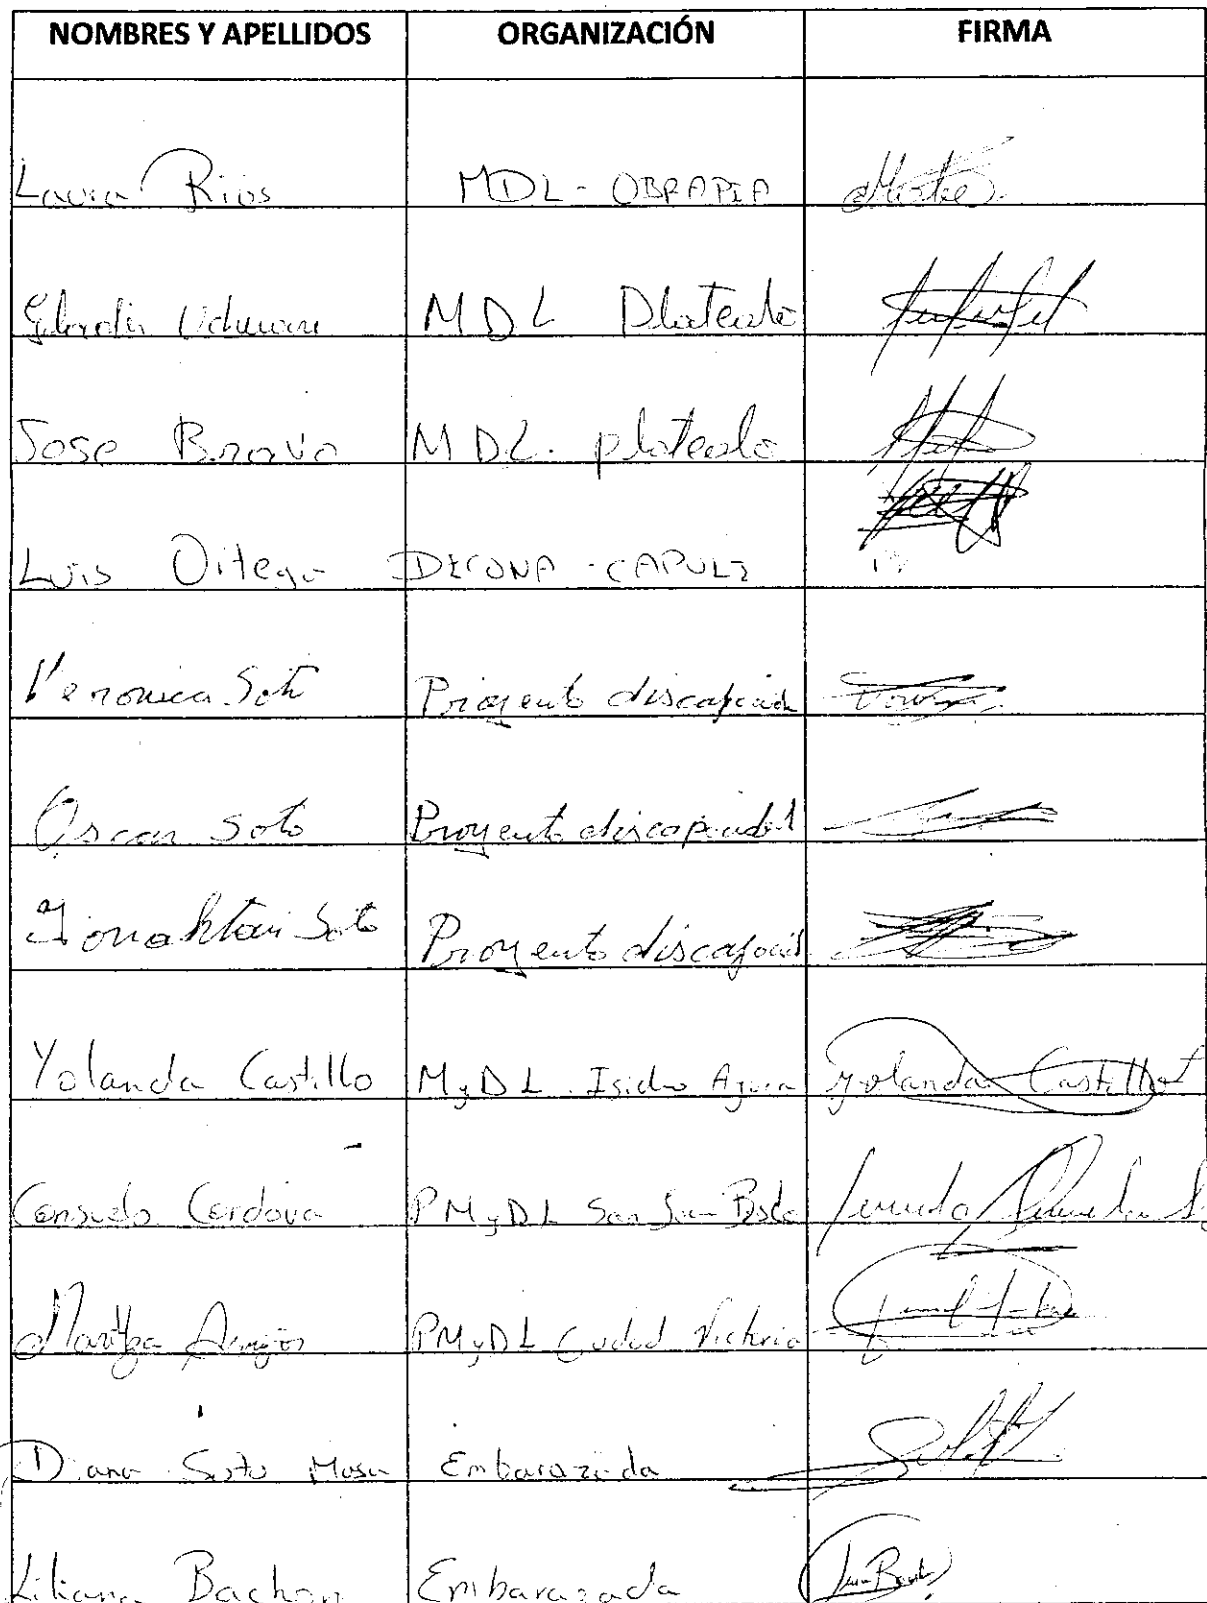 NOMBRES Y APELLIDOS ORGANIZACIÓN FIRMA
Laura Rios MDL - OBRAPIA
MDL Plateado
Jose Bravo MDL. plateado
Luis Ortega DECONA - CAPULI
Veronica Soto Proyento discapacida
Oscar Soto Proyento discapacidad
Jonahtan Soto Proyento discapacid
Yolanda Castillo MyDL Isidro Ayora Yolanda Castillo
Consuelo Cordova PMyDL San Juan Bosco
Maritza Armijos PMyDL Ciudad Victoria
Diana Soto Masa Embarazada
Liliana Bachon Embarazada